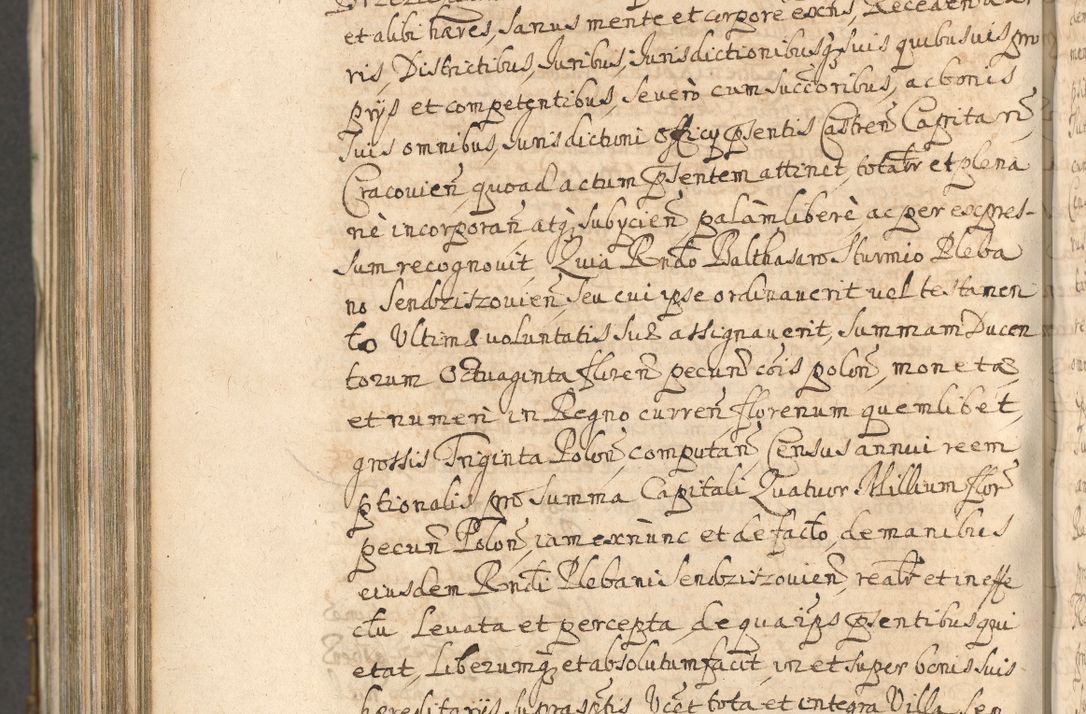 et alibi hæres, sanus mente et corpore exns, Recedendo a
ris, Districtibus, Juribus, Jurisdictionibusq suis quibusuis pro
prijs et competentibus, se verò cum succoribus, ac bonis
suis omnibus, Jurisdictioni Officij pñtis Castren Capitan
Cracovien, quoad actum psentem attinet, totatr et plena
riè incorporan atq, subijcien palàm liberè ac per expres-
sum recognovit, Quia Rndo Balthasaro Sturmio Pleba
no Sendziszovien, seu cui ipse ordinaverit vel testamen
to Ultimæ voluntatis suæ assignaverit, summam Ducen
torum Octuaginta floren pecun cõis polon, monetæ
et numeri in Regno curren, florenum quemlibet,
grossis Triginta Polon, computan, Census annui reem
ptionalis pro Summa Capitali Quatuor Millium flor
pecun Polon, iam exnunc et de facto, de manibus
eiusdem Rndi Plebani Sendziszovien, realr et in effe
ctu Levata et percepta, de qua ips psentibus qui
etat, Liberumq et absolutum facit, in et super bonis suis
hereditarijs suprasptis Ucet tota et integra Villa Sen